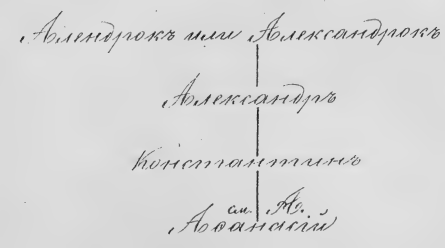 Алендрокъ или Александрокъ
Александръ
Константинъ
см. А.
Аѳанасій